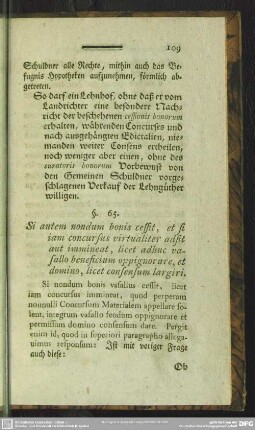 109
Schuldner alle Rechte, mithin auch das Be-
fugnis Hypotheken aufzunehmen, förmlich ab-
getreten.
So darf ein Lehnhof, ohne daß er vom
Landrichter eine besondere Nach-
richt der beschehenen cessionis bonorum
erhalten, währenden Concurses und
nach ausgehängten Edictalien, nie-
manden weiter Consens ertheilen,
noch weniger aber einen, ohne des
curatoris bonorum Vorbewust von
den Gemeinen Schuldner vorge-
schlagenen Verkauf der Lehngüther
willigen.
§. 65.
Si autem nondum bonis cessit, et si
iam concursus virtualiter adsit
aut immineat, licet adhuc va-
sallo beneficium oppignorare, et
domino, licet consensum largiri.
Si nondum bonis vasallus cessit, licet
iam concursus immineat, quod perperam
nonnulli Concursum Materialem appellare so-
lent, integrum vasallo feudum oppignorare et
permissum domino consensum dare. Pergit
enim id, quod in superiori paragrapho allega-
uimus responsum: Ist mit voriger Frage
auch diese:
Ob